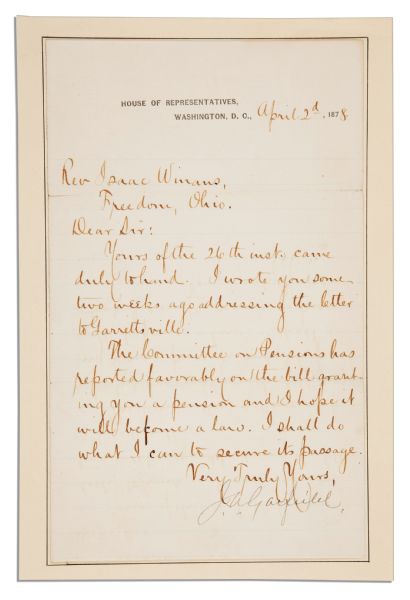 HOUSE OF REPRESENTATIVES,
WASHINGTON, D. C., April 2d, 1878
Rev Isaac Winans,
Freedom, Ohio.
Dear Sir:
Yours of the 26th inst. came
duly to hand. I wrote you some
two weeks ago addressing the letter
to Garrettsville.
The Committee on Pensions has
reported favorably on the bill grant-
ing you a pension and I hope it
will become a law. I shall do
what I can to secure its passage.
Very Truly Yours,
J.A. Garfield.